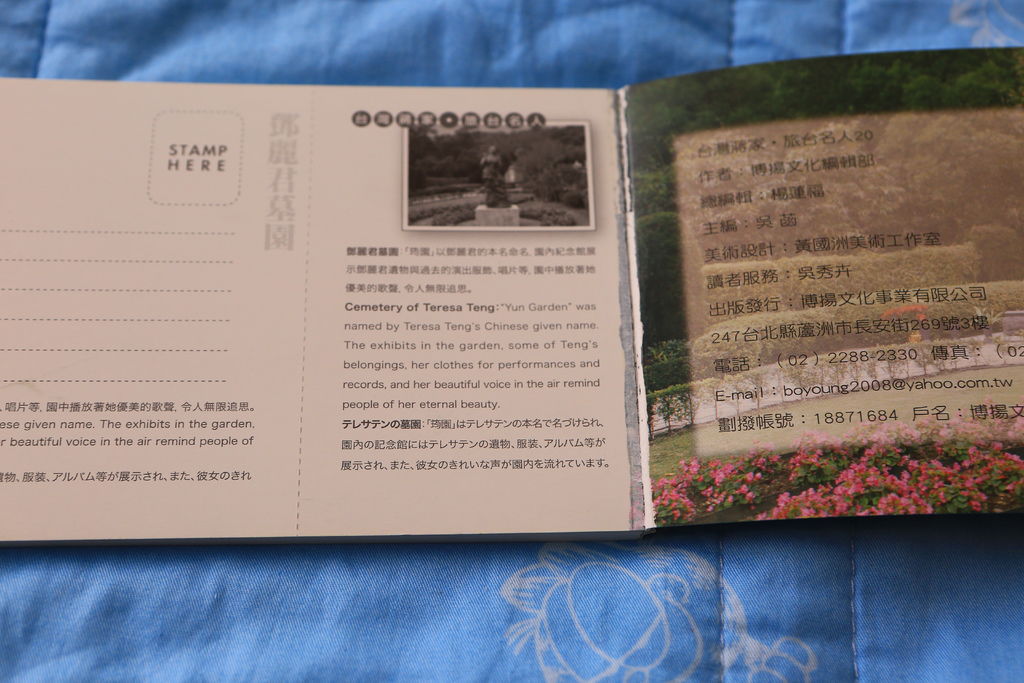 STAMP
HERE
鄧麗君墓園
唱片等, 園中播放著她優美的歌聲, 令人無限追思。
ese given name. The exhibits in the garden,
r beautiful voice in the air remind people of
遺物、服装、アルバム等が展示され、また、彼女のきれ
台灣蔣家・旅台名人
鄧麗君墓園:「筠園」以鄧麗君的本名命名, 園內紀念館展
示鄧麗君遺物與過去的演出服飾、唱片等, 園中播放著她
優美的歌聲, 令人無限追思。
Cemetery of Teresa Teng: "Yun Garden" was
named by Teresa Teng's Chinese given name.
The exhibits in the garden, some of Teng's
belongings, her clothes for performances and
records, and her beautiful voice in the air remind
people of her eternal beauty.
テレサテンの墓園:「筠園」はテレサテンの本名で名づけられ、
園內の記念館にはテレサテンの遺物、服装、アルバム等が
展示され、また、彼女のきれいな声が園内を流れています。
台灣蔣家・旅台名人20
作者:博揚文化編輯部
總編輯:楊蓮福
主編:吳 菡
美術設計:黃國洲美術工作室
讀者服務:吳秀卉
出版發行:博揚文化事業有限公司
247台北縣蘆洲市長安街269號3樓
電話:(02)2288-2330 傳真:(02
E-mail:boyoung2008@yahoo.com.tw
劃撥帳號:18871684 戶名:博揚文